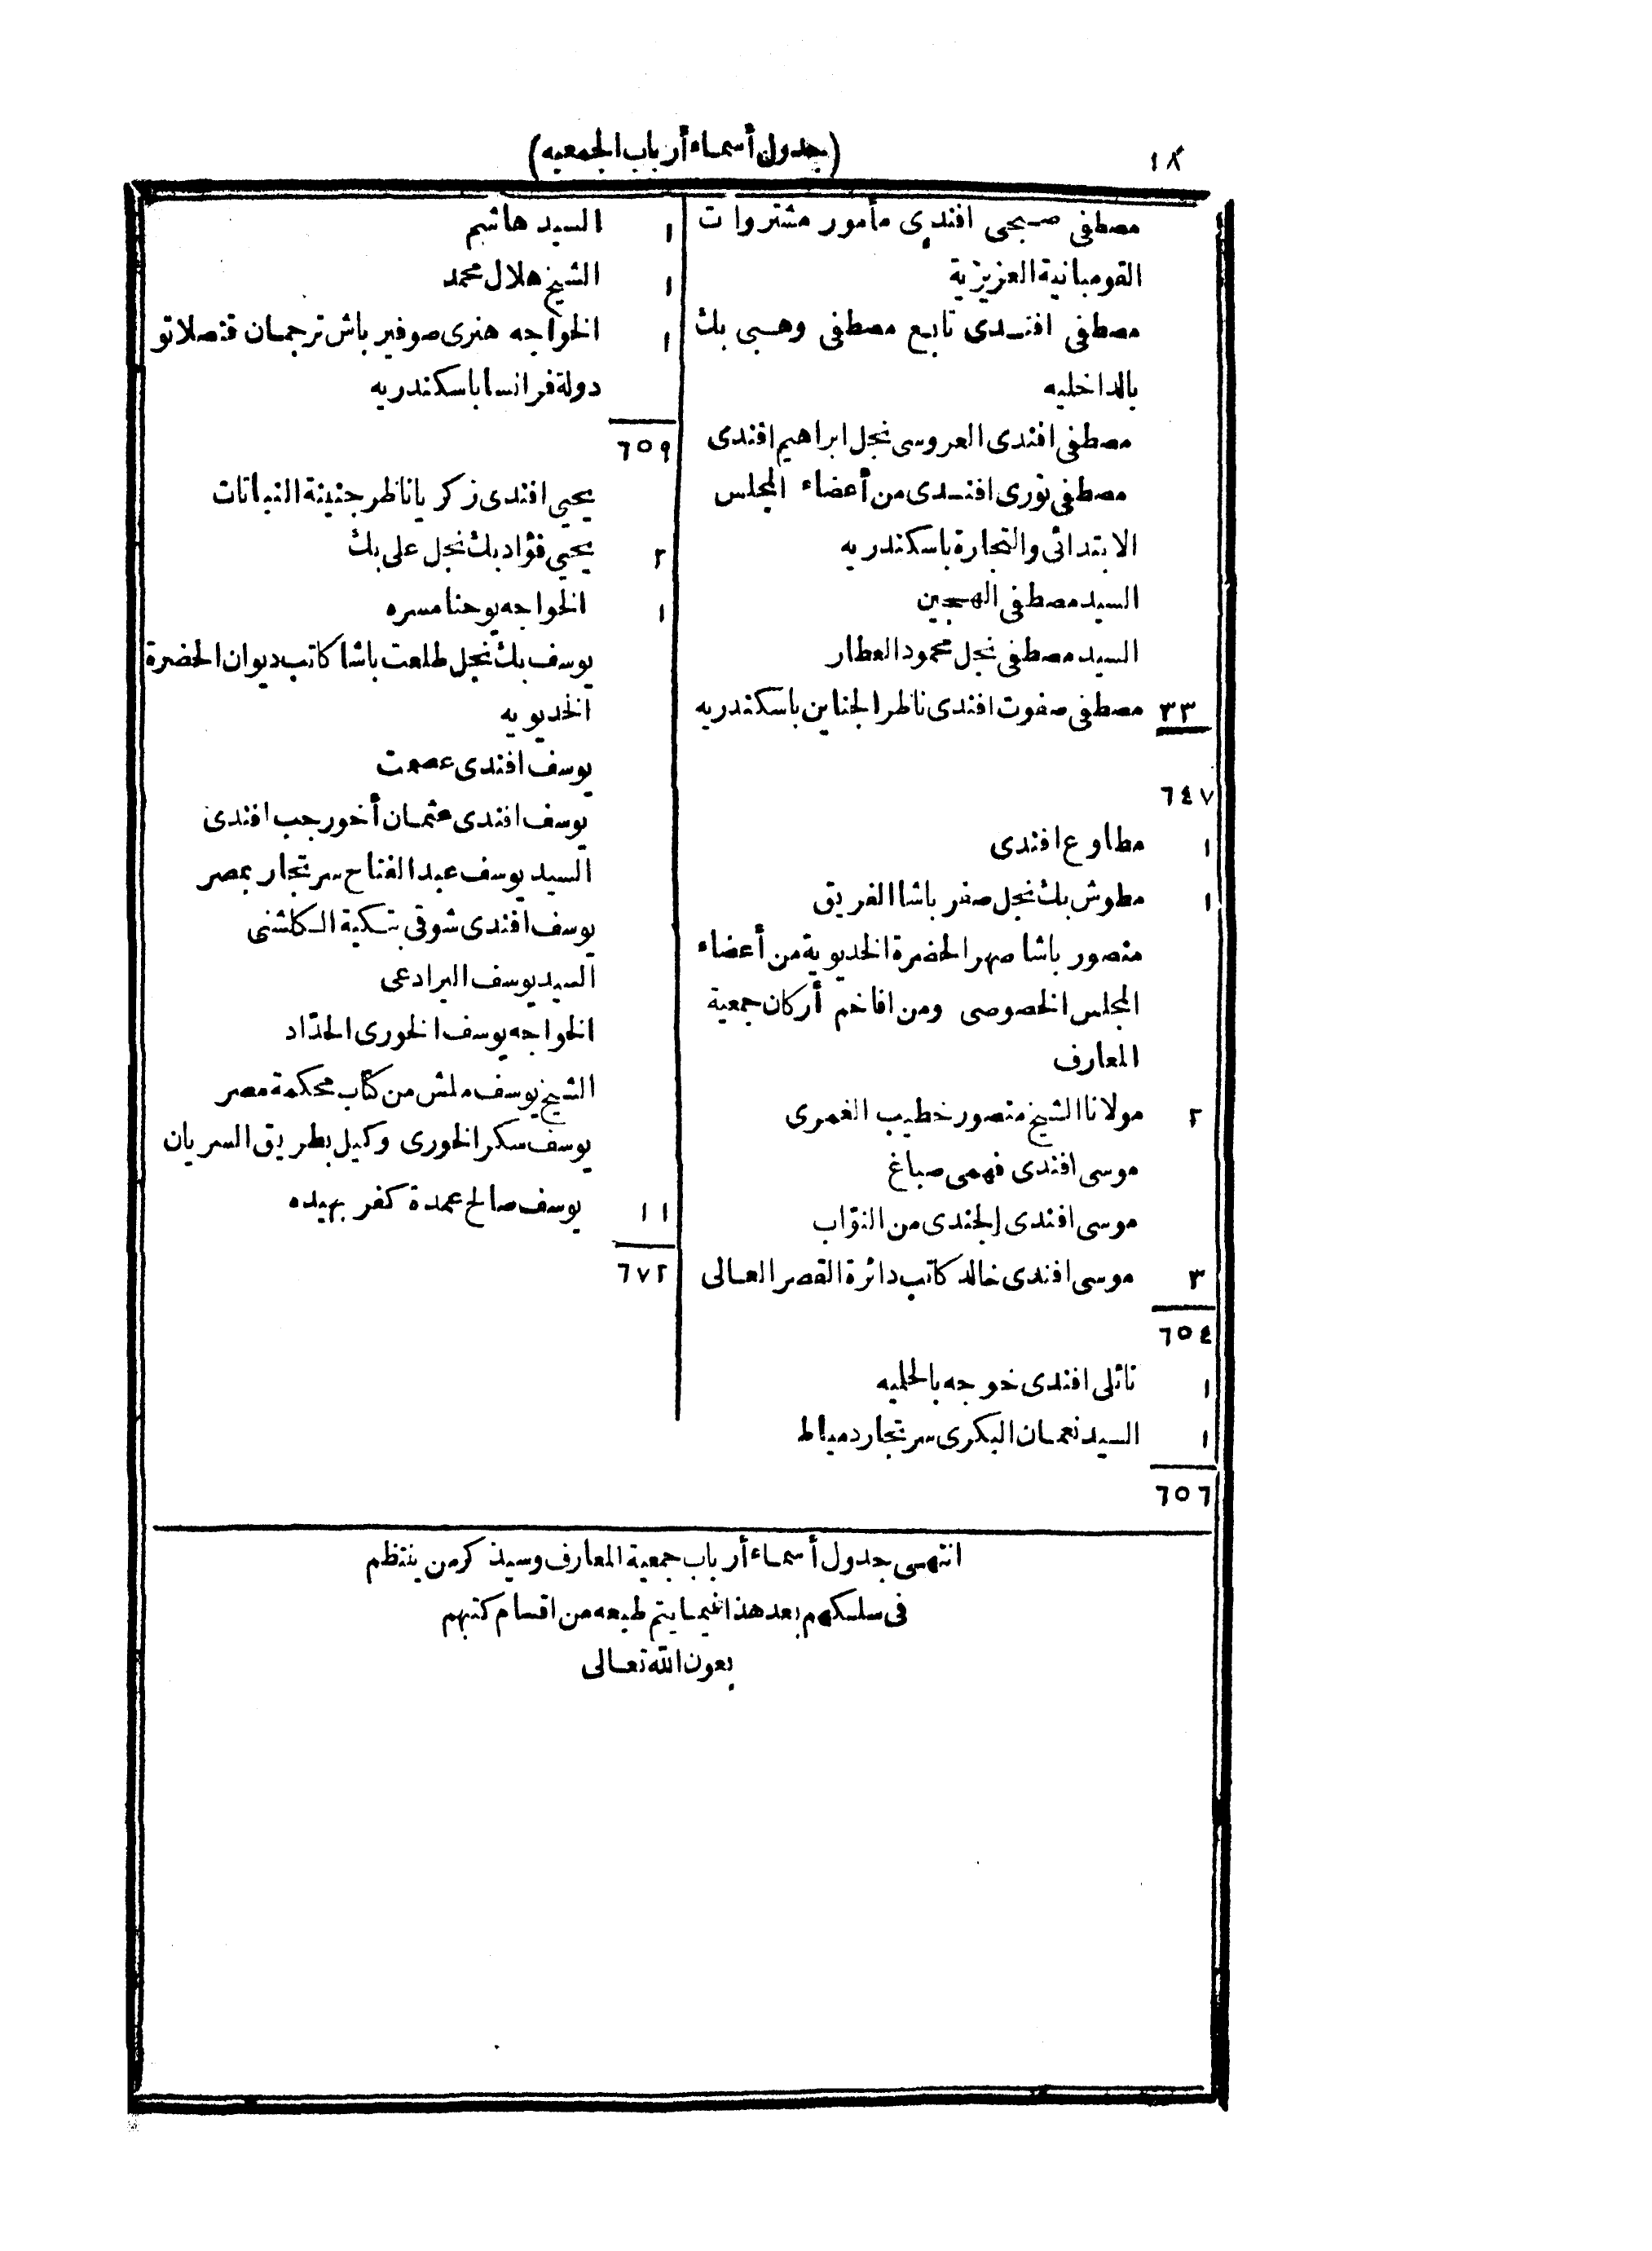 ١٨
(جدول أسماء أرباب الجمعيه)
مصطفى صبحى افندى مأمور مشتروات
القومبانية العزيزية
مصطفى افندى تابع مصطفى وهبى بك
بالداخليه
مصطفى افندى العروسى نجل ابراهيم افندى
مصطفى نورى افندى من أعضاء المجلس
الابتدائى والتجارة باسكندريه
السيد مصطفى الهجين
السيد مصطفى نجل محمود العطار
٣٣ مصطفى صفوت افندى ناظر الجناين باسكندريه
٦٤٧
١ مطاوع افندى
١ مطوش بك نجل صفر باشا الفريق
منصور باشا صهر الحضرة الخديوية من أعضاء
المجلس الخصوصى ومن افاخم أركان جمعية
المعارف
٢ مولانا الشيخ منصور خطيب الغمرى
موسى افندى فهمى صباغ
موسى افندى الجندى من النوّاب
٣ موسى افندى خالد كاتب دائرة القصر العالى
٦٥٤
١ نائلى افندى خوجه بالحلميه
١ السيد نعمان البكرى سر تجار دمياط
٦٥٦
١ السيد هاشم
١ الشيخ هلال محمد
١ الخواجه هنرى صوفير باش ترجمان قنصلاتو
دولة فرانسا باسكندريه
٦٥٩
يحيى افندى زكريا ناظر جنينة النباتات
٢ يحيى فؤاد بك نجل على بك
١ الخواجه يوحنا مسره
يوسف بك نجل طلعت باشا كاتب ديوان الحضرة
الخديويه
يوسف افندى عصمت
يوسف افندى عثمان أخو رجب افندى
السيد يوسف عبد الفتاح سر تجار بمصر
يوسف افندى شوقى بتكية الكلشنى
السيد يوسف البرادعى
الخواجه يوسف الخورى الحدّاد
الشيخ يوسف ملش من كتّاب محكمة مصر
يوسف سكر الخورى وكيل بطريق السريان
١١ يوسف صالح عمدة كفر بهيده
٦٧٢
انتهى جدول أسماء أرباب جمعية المعارف وسيذكر من ينتظم
فى سلسكهم بعد هذا فيما يتم طبعه من اقسام كتبهم
بعون الله تعالى